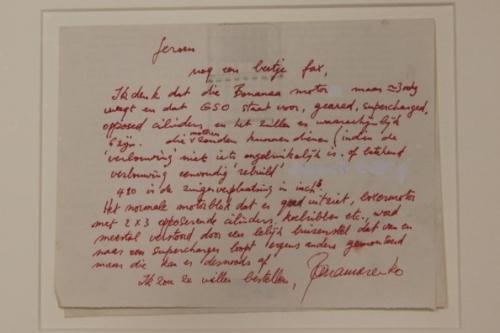 Jeroen
nog een beetje fax,
Ik denk dat die Bonanza motor maar ≈ 300kg
weegt en dat GSO staat voor, geared, supercharged,
opposed cilinders, en het zullen er waarschijnlijk
6 zijn. die motoren zouden kunnen dienen (indien de
verbouwing niet iets ongelukkigs is. of
verbouwing eenvoudig 'rebuild'
480 is de zuigerverplaatsing in inch³
Het normale motorblok dat er goed uitziet, boxermotor
met 2x3 opposerende cilinders, koelribben etc., word
meestal verstoord door een lelijk buizenstel dat van en
naar een supercharger loopt ergens anders gemonteerd
maar die kan er desnoods af.
Ik zou ze willen bestellen, Panamarenko